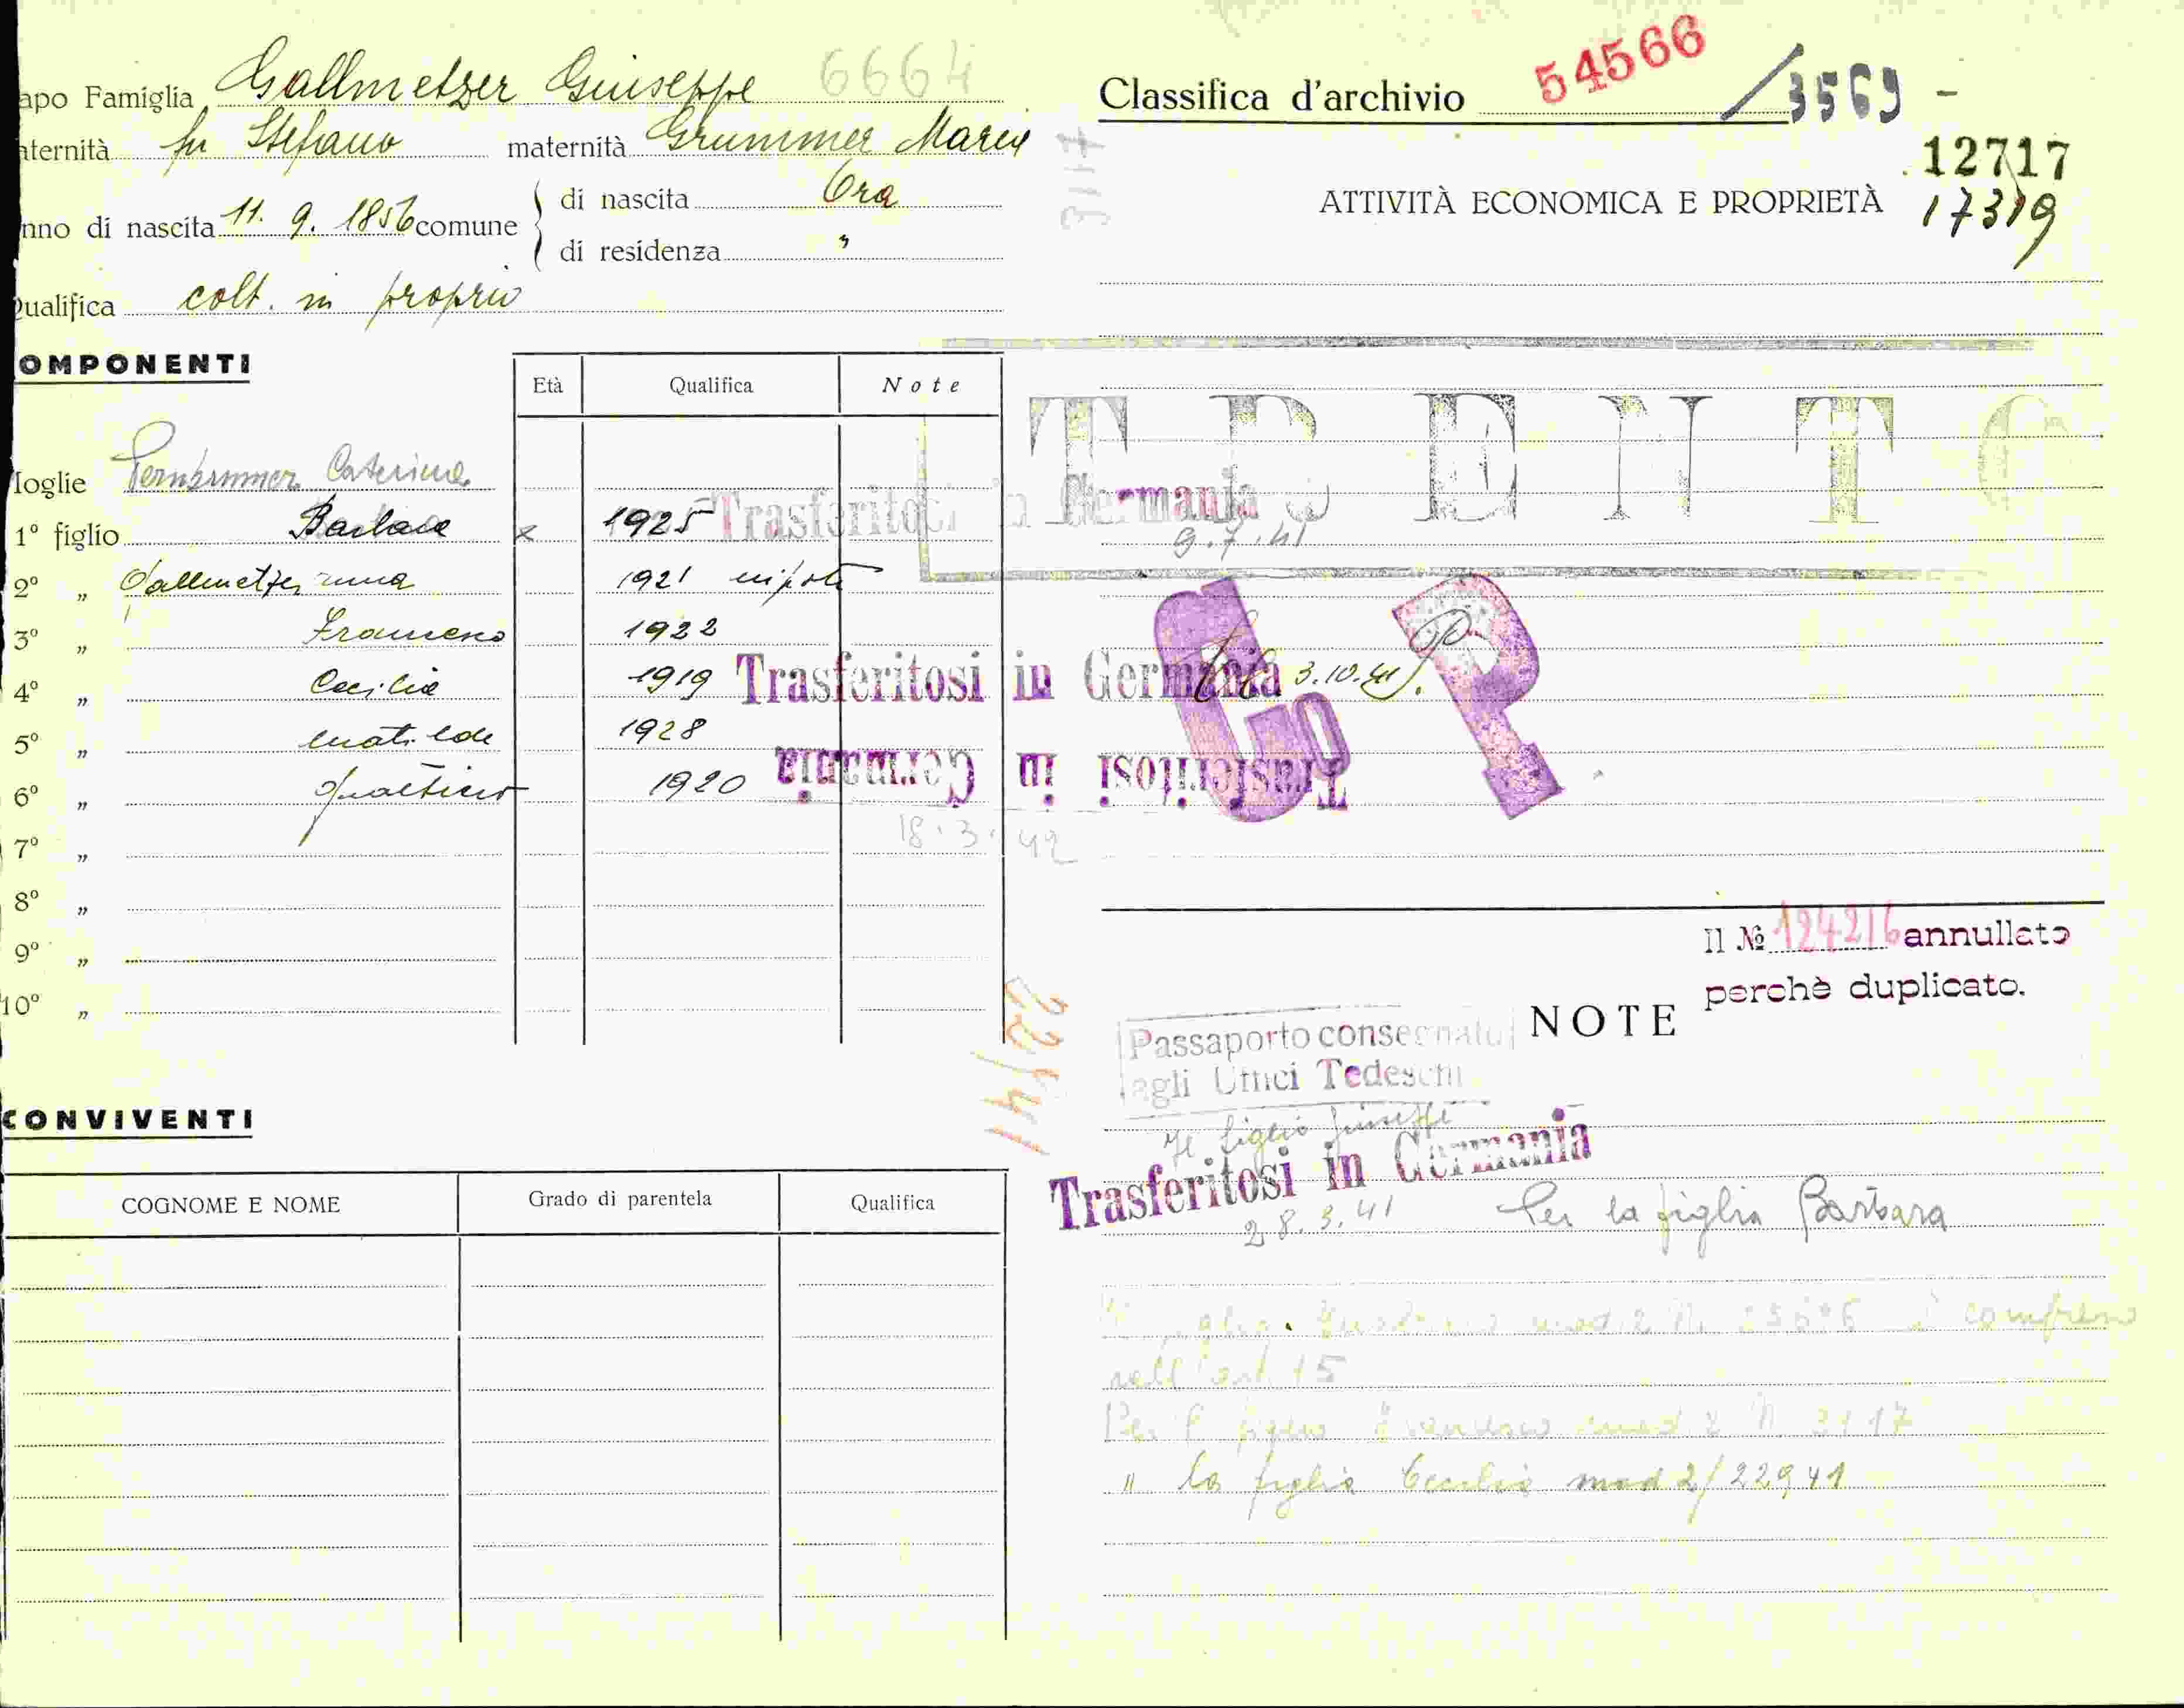 apo Famiglia Gallmetzer Giuseppe 6664
aternità fu Stefano maternità Grummer Maria
nno di nascita 11. 9. 1856 comune di nascita Ora
di residenza "
Qualifica colt. in proprio
OMPONENTI
Età Qualifica Note
Moglie Caterina
1º figlio Barbara x 1925 Trasferitosi in Germania
9.7.41
2º " Gallmetzer 1921 nipote
3º " Francesco 1922
4º " Cecilia 1919 Trasferitosi in Germania 3.10.41
5º " Matilde 1928
6º " 1920 Trasferitosi in Germania
18.3.42
7º "
8º "
9º "
10º "
CONVIVENTI
COGNOME E NOME Grado di parentela Qualifica
Classifica d'archivio 54566 /3569 -
3117
12717
ATTIVITÀ ECONOMICA E PROPRIETÀ 17319
TRENTO
G P
Il № 124216 annullato
perchè duplicato.
22941
NOTE
Passaporto consegnato
agli Uffici Tedeschi
Il figlio Giuseppe
Trasferitosi in Germania
28.3.41 Per la figlia Barbara
mod 2 N. è compreso
nell'art. 15
Per il figlio Francesco mod 2 N. 3117
" la figlia Cecilia mod 2/22941